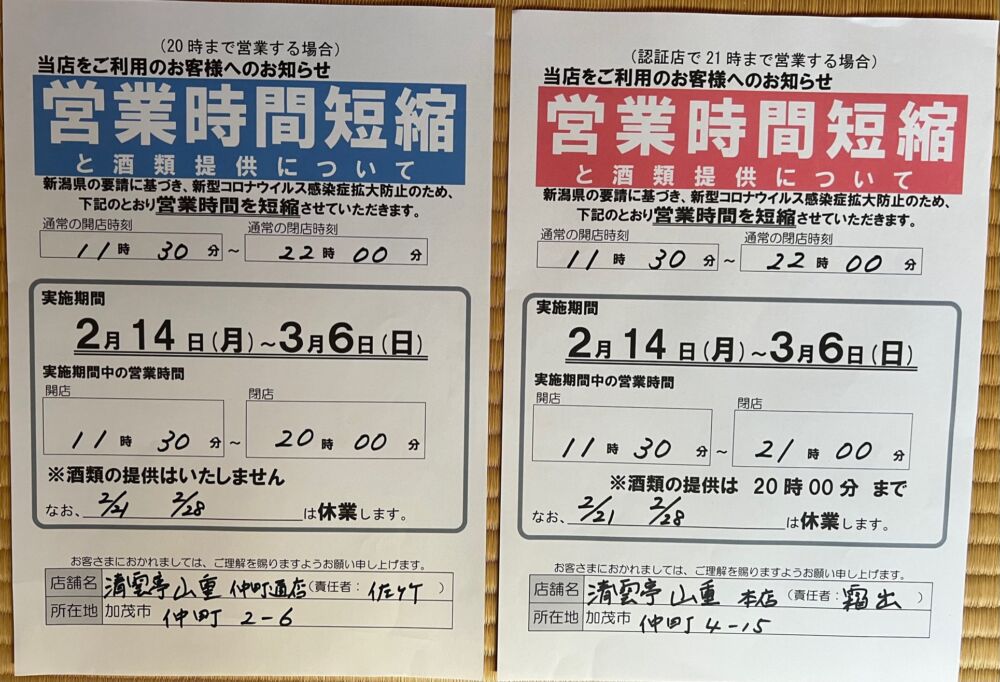 (20時まで営業する場合)
当店をご利用のお客様へのお知らせ
営業時間短縮
と酒類提供について
新潟県の要請に基づき、新型コロナウイルス感染症拡大防止のため、
下記のとおり営業時間を短縮させていただきます。
通常の開店時刻 通常の閉店時刻
11時30分～22時00分
実施期間
2月14日(月)～3月6日(日)
実施期間中の営業時間
開店 閉店
11時30分～20時00分
※酒類の提供はいたしません
なお、2/21 2/28は休業します。
お客さまにおかれましては、ご理解を賜りますようお願い申し上げます。
店舗名 清雲亭山重 仲町通店(責任者: )
所在地 加茂市 仲町 2-6
(認証店で21時まで営業する場合)
当店をご利用のお客様へのお知らせ
営業時間短縮
と酒類提供について
新潟県の要請に基づき、新型コロナウイルス感染症拡大防止のため、
下記のとおり営業時間を短縮させていただきます。
通常の開店時刻 通常の閉店時刻
11時30分～22時00分
実施期間
2月14日(月)～3月6日(日)
実施期間中の営業時間
開店 閉店
11時30分～21時00分
※酒類の提供は 20時00分 まで
なお、2/21 2/28は休業します。
お客さまにおかれましては、ご理解を賜りますようお願い申し上げます。
店舗名 清雲亭山重 本店(責任者: )
所在地 加茂市 仲町 4-15